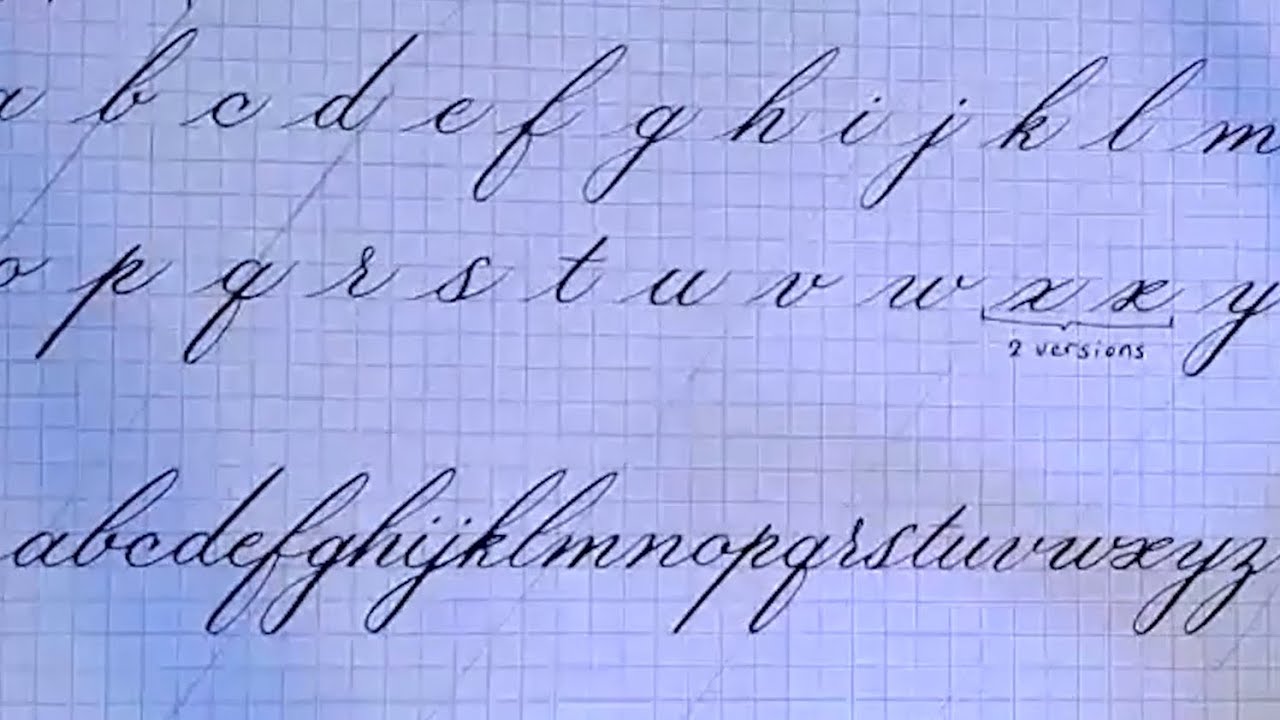 a b c d e f g h i j k l m
o p q r s t u v w x x y
2 versions
abcdefghijklmnopqrstuvwxyz